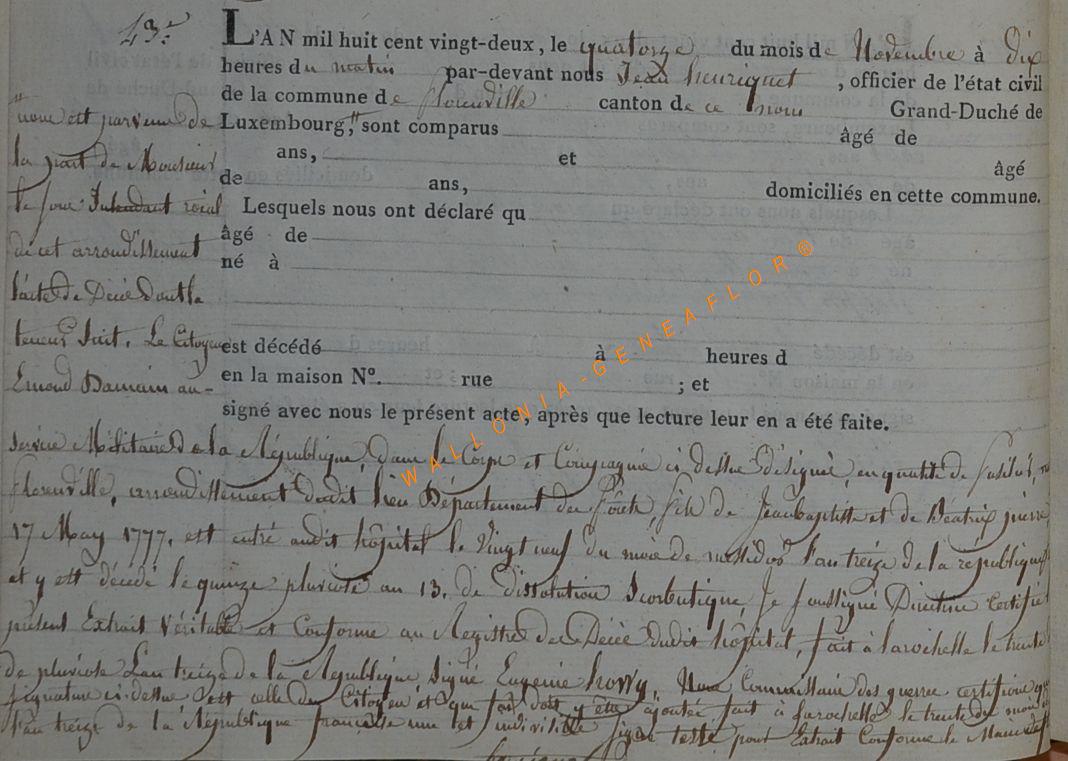 43.e
L'AN mil huit cent vingt-deux, le quatorze du mois de Novembre à Dix
heures du matin par-devant nous Jean henriquet, officier de l'état civil
de la commune de florenville canton de ce nom Grand-Duché de
Luxembourg," sont comparus âgé de
ans, et âgé
de ans, domiciliés en cette commune.
Lesquels nous ont déclaré qu
âgé de
né à
est décédé à heures d
en la maison N°. rue ; et
signé avec nous le présent acte, après que lecture leur en a été faite.
" nous est parvenu de
la part de Monsieur
le sous Intendant roial
de cet arrondissement
l'acte de Décè dont la
teneur suit. Le Citoyen
Emond Damain au-
service Militaire de la République, dans le Corps et Compagnie ci dessus désigné, en qualité de fusilier,
florenville, arrondissement dudit lieu Département des forêts, fils de Jeanbaptiste et de Béatrix pierre
17 May 1777. est entré audit hôpital le Vingt neuf du mois de messidor l'an treize de la république
et y est décédé le quinze pluviose an 13. de dissolution Scorbutique, Je soussigné Directeur Certifie
présent Extrait Véritable et Conforme au Registre des Décès dudit hôpital, fait à larochelle le trente
de pluviose L'an treize de la République Signé Eugenie Nous Commissaire des guerres certifions que
signature ci-dessus est celle du Citoyen et que foi doit y etre ajoutée fait à Larochelle le trente du mois
l'an treize de la République française une et indivisible signé pour Extrait Conforme le
WALLONIA-GENEAFLOR®